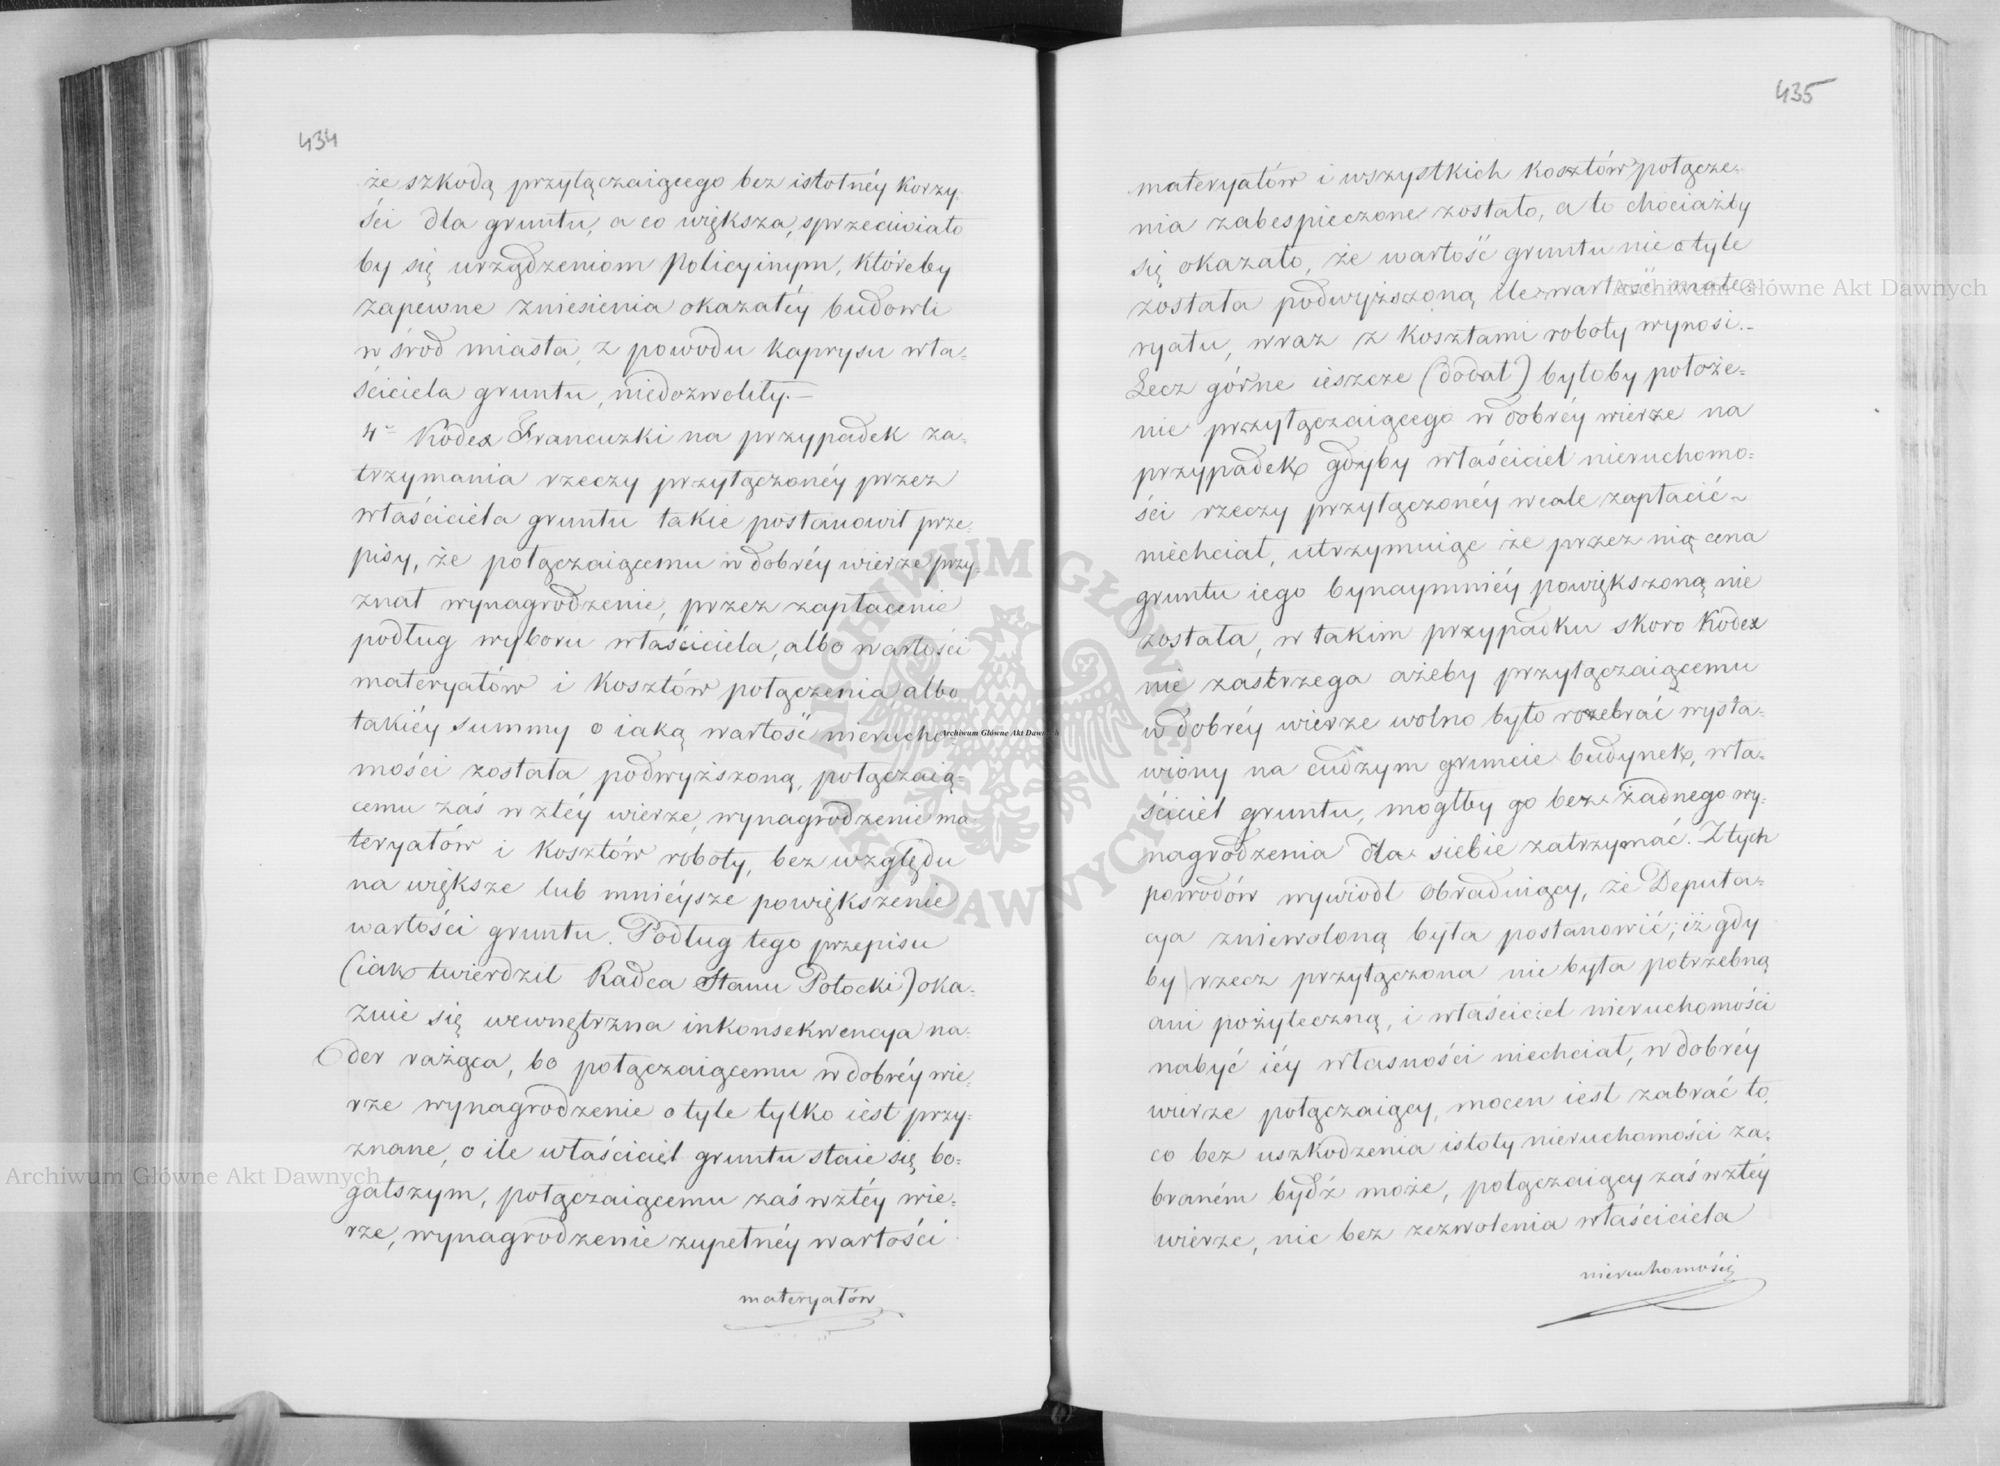 434
że szkodą przyłączaiącego bez istotnéy korzy-
ści dla gruntu, a co większa, sprzeciwiało
by się urządzeniom Policyinym, któreby
zapewne zniesienia okazałéy budowli
w środ miasta, z powodu kaprysu wła-
ściciela gruntu, niedozwoliły.—
4º Kodex Francuzki na przypadek za-
trzymania rzeczy przyłączonéy przez
właściciela gruntu takie postanowił prze-
pisy, że połączaiącemu w dobréy wierze przy-
znał wynagrodzenie, przez zapłacenie
podług wyboru właściciela, albo wartości
materyałów i kosztów połączenia, albo
takiéy summy o iaką wartość nierucho-
mości została podwyższoną, połączaią-
cemu zaś w złéy wierze, wynagrodzenie ma
teryałów i kosztów roboty, bez względu
na większe lub mnieysze powiększenie
wartości gruntu. Podług tego przepisu
(iak twierdził Radca Stanu Potocki) oka-
zuie się wewnętrzna inkonsekwencya na-
der rażąca, bo połączaiącemu w dobréy wie-
rze wynagrodzenie o tyle tylko iest przy-
znane, o ile właściciel gruntu staie się bo-
gatszym, połączaiącemu zaś w złéy wie-
rze, wynagrodzenie zupełnéy wartości
materyałów
435
materyałów i wszystkich kosztów połącze-
nia zabespieczone zostało, a to chociażby
się okazało, że wartość gruntu nie o tyle
została podwyższoną ile wartość mate-
ryału, wraz z kosztami roboty wynosi.—
Lecz górne ieszcze (dodał) byłoby położe-
nie przyłączaiącego w dobréy wierze na
przypadek gdyby właściciel nieruchomo-
ści rzeczy przyłączonéy wcale zapłacić
niechciał, utrzymuiąc że przez nią cena
gruntu iego bynaymniéy powiększoną nie
została, w takim przypadku skoro Kodex
nie zastrzega ażeby przyłączaiącemu
w dobréy wierze wolno było rozebrać wysta-
wiony na cudzym gruncie budynek, wła-
ściciel gruntu, mógłby go bez żadnego wy-
nagrodzenia dla siebie zatrzymać. Z tych
powodów wywiodł obraduiący, że Deputa-
cya zniewoloną była postanowić; iż gdy
by rzecz przyłączona nie była potrzebną
ani pożyteczną, i właściciel nieruchomości
nabyć iéy własności niechciał, w dobréy
wierze połączaiący, mocen iest zabrać to,
co bez uszkodzenia istoty nieruchomości za-
braném bydź może, połączaiący zaś w złéy
wierze, nic bez zezwolenia właściciela
nieruchomości
Archiwum Główne Akt Dawnych
Archiwum Główne Akt Dawnych
Archiwum Główne Akt Dawnych
ARCHIWUM GŁÓWNE AKT DAWNYCH